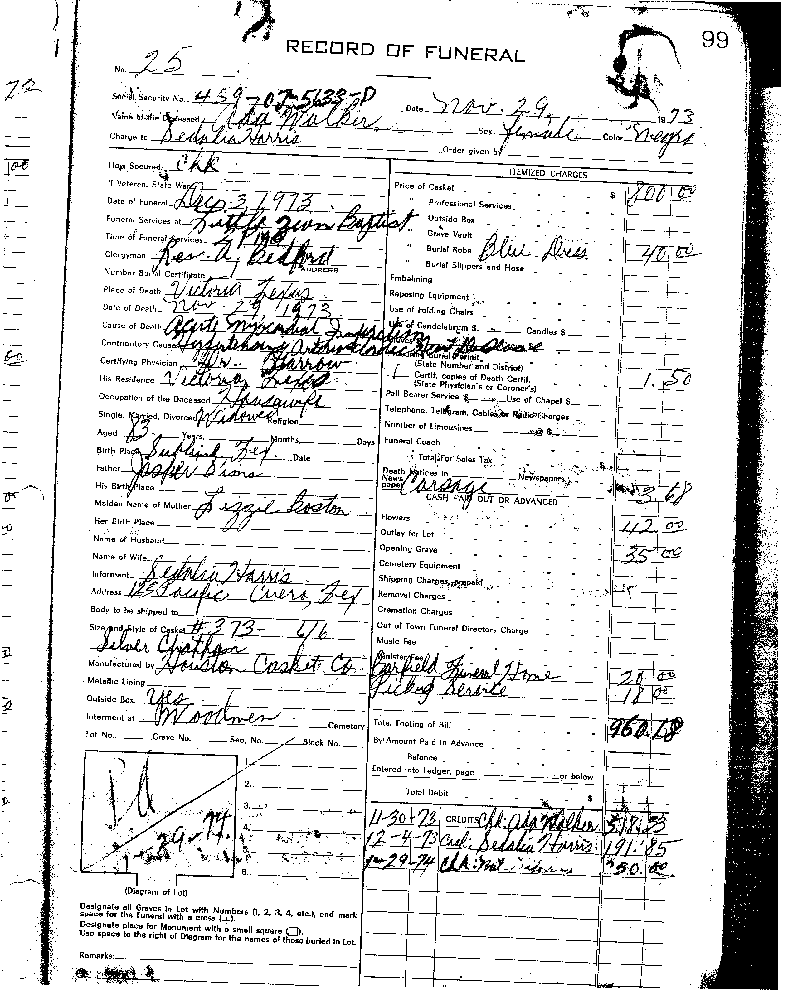 99
RECORD OF FUNERAL
No. 25
Social Security No. 459-07-5633-D
Date Nov. 29, 1973
Name of the Deceased Ada Walker
Sex female Color Negro
Charge to Sedalia Harris
Order given by
How Secured Chk
If Veteran, State War
Date of Funeral Dec 3 1973
Funeral Services at Zion Baptist
Time of Funeral Services
Clergyman Rev. A. Bedford
ADDRESS
Number Burial Certificate
Place of Death Victoria Texas
Date of Death Nov 29, 1973
Cause of Death Acute Myocardial
Contributory Cause
Certifying Physician Dr. Barrow
His Residence Victoria, Texas
Occupation of the Deceased Housewife
Single, Married, Divorced Widowed Religion
Aged 83 Years, Months, Days
Birth Place Sublime Tex Date
Father Jasper Sims
His Birth Place
Maiden Name of Mother Lizzie Boston
Her Birth Place
Name of Husband
Name of Wife
Informant Sedalia Harris
Address 125 Pacific Cuero, Tex
Body to be shipped to
Size and Style of Casket #373- 6/6
Silver
Manufactured by Houston Casket Co.
Metallic Lining
Outside Box Yes
Interment at Woodmen Cemetery
Lot No. Grave No. Sec. No. Block No.
1.
2.
3.
4.
5.
6.
Pd
1-29-74
(Diagram of Lot)
Designate all Graves in Lot with Numbers (1, 2, 3, 4, etc.), and mark
space for the funeral with a cross (+).
Designate place for Monument with a small square (☐).
Use space to the right of Diagram for the names of those buried in Lot.
Remarks:
ITEMIZED CHARGES
Price of Casket $ 800 00
" Professional Services
" Outside Box
" Grave Vault
" Burial Robe Blue Dress 40.00
" Burial Slippers and Hose
Embalming
Reposing Equipment
Use of Folding Chairs
Use of Candelabrum $ Candles $
Burial Permit
(State Number and District)
1 Certif. copies of Death Certif. 1.50
(State Physician's or Coroner's)
Pall Bearer Service $ Use of Chapel $
Telephone, Telegram, Cables or Radio Charges
Number of Limousines @ $
Funeral Coach
Total For Sales Tax $
Death Notices in Newspapers
Newspaper Corsage 3 68
CASH PAID OUT OR ADVANCED
Flowers
Outlay for Lot 42.00
Opening Grave 35 00
Cemetery Equipment
Shipping Charges, prepaid
Removal Charges
Cremation Charges
Out of Town Funeral Directors Charge
Music Fee
Minister Fee
Garfield Funeral Home 20 00
Service 18 00
Total Footing of Bill 960.18
By Amount Paid in Advance
Balance
Entered into Ledger, page or below
Total Debit $
11-30-73 CREDITS Chk. Ada Walker 518.33
12-4-73 Sedalia Harris 191.85
1-29-74 Chk. 250.00